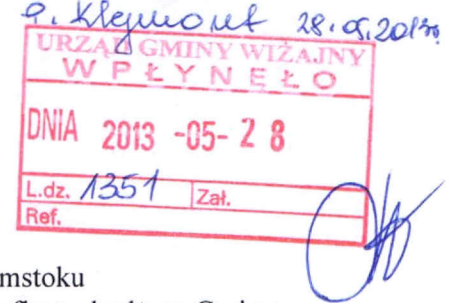 P. Klejmont 28.05.2013r.
URZĄD GMINY WIŻAJNY
WPŁYNĘŁO
DNIA 2013 -05- 28
L.dz. 1351 Zał.
Ref.
mstoku